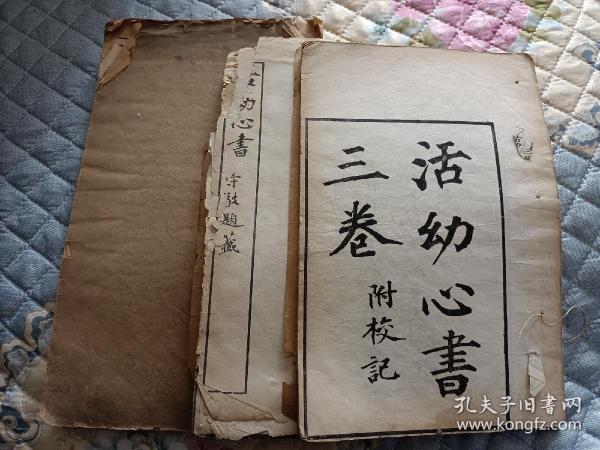 活幼心書
三卷
附校記
幼心書
守敬題籤
孔夫子旧书网
www.kongfz.com